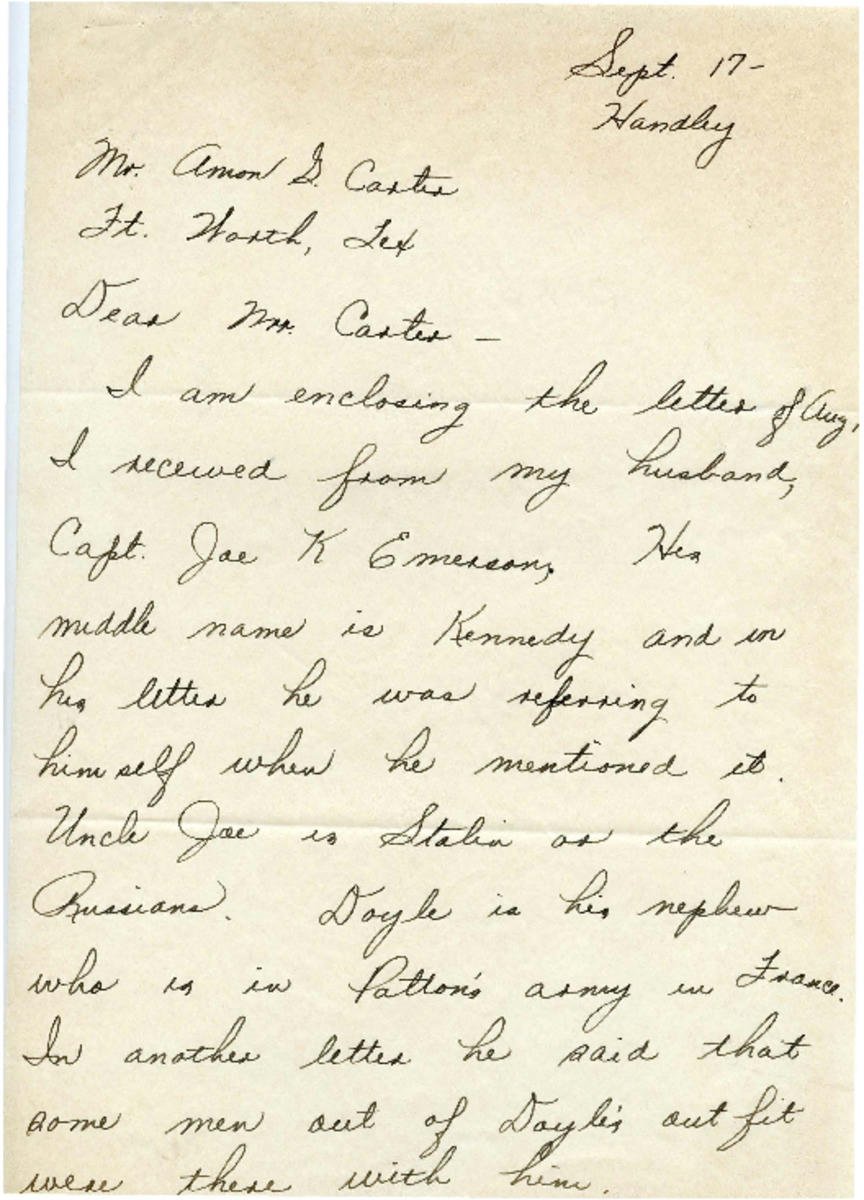 Sept. 17-
Handley
Mr. Amon G. Carter
Ft. Worth, Tex
Dear Mr. Carter -
I am enclosing the letter of Aug,
I received from my husband,
Capt. Joe K Emerson, His
middle name is Kennedy and in
his letter he was referring to
himself when he mentioned it.
Uncle Joe is Stalin or the
Russians. Doyle is his nephew
who is in Patton's army in France.
In another letter he said that
some men out of Doyle's out fit
were there with him.